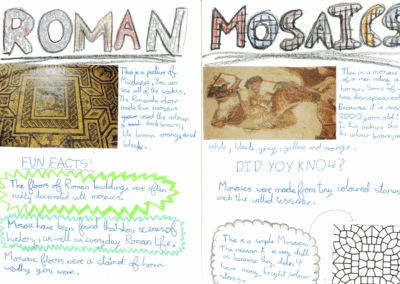 ROMAN
This is a picture of
Medusa. You can
see all of the snakes.
The Romans who
made this mosaic
used the colour
a dark brown,
lite brown orange and
black.
FUN FACTS!
The floors of Roman buildings were often
richly decorated with mosaics.
Mosaics have been found that show scenes of
history, as well as everyday Roman life.
Mosaic floors were a statment of how
wealthy you were.
MOSAICS
This is a mosaic
of a man riding a
horse. Some of
has disappeared
Because it is over
2000 years old!
In this picture the
colour brown, red
white, black, grey, yellow and orange.
DID YOY KNOW?
Mosaics were made from tiny coloured stones
wich the called tesserae.
This is a simple Mosaic.
The reason it is very dull
is because they didn't
have many bright colour
stones.